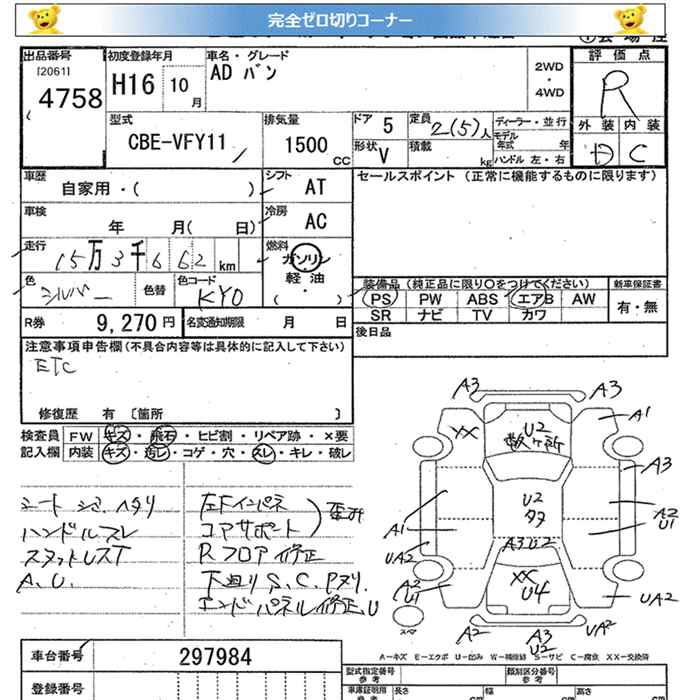 完全ゼロ切りコーナー
出品番号 初度登録年月 車名・グレード 評価点
[2061] 4758 H16 10月 AD バン 2WD・4WD R
型式 排気量 ドア 5 定員 2(5)人 ディーラー・並行 外装 内装
CBE-VFY11 1500 CC 形状 V 積載 kg モデル年式 年 ハンドル 左・右 D C
車歴 自家用・( ) シフト AT セールスポイント (正常に機能するものに限ります)
車検 年 月( 日) 冷房 AC
走行 15万3千662 km 燃料 ガソリン
色 シルバー 色替 色コード KY0 軽油 ・( ) 装備品(純正品に限り○をつけてください) 新車保証書
PS PW ABS エアB AW 有・無
SR ナビ TV カワ
R券 9,270円 名変通知期限 月 日 後日品
注意事項申告欄(不具合内容等は具体的に記入して下さい)
ETC
修復歴 有 〔箇所 〕
検査員 FW キズ・飛石・ヒビ割・リペア跡・×要
記入欄 内装 キズ・汚レ・コゲ・穴・スレ・キレ・破レ
シート シミ ヘタリ 左Fインパネ
ハンドルスレ コアサポート 歪み
スタットレスT Rフロア修正
A.U. 下廻りS.C.Pヌリ.
エンドパネル修正U
A3 A3
XX U2 A1
数ヶ所
A3
U2
A1 タタ A2
U1
UA2 A3U2
A2 XX
U1 U4 UA2
スペア A2 A3 UA2
U2
A-キズ E-エクボ U-凹み W-補修跡 S-サビ C-腐食 XX-交換済
車台番号 297984 型式指定番号 参考 類別区分番号 参考
登録番号 車庫証明用 長さ 幅 高さ